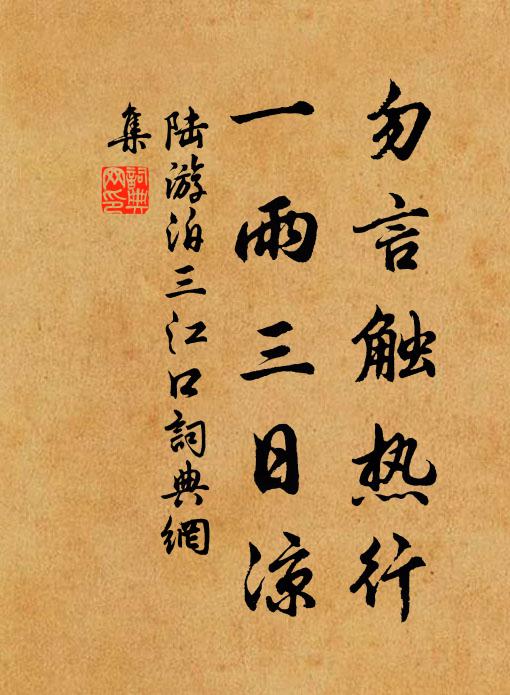 勿言触热行
一雨三日凉
陆游泊三江口詞典網
集
詞典
网印